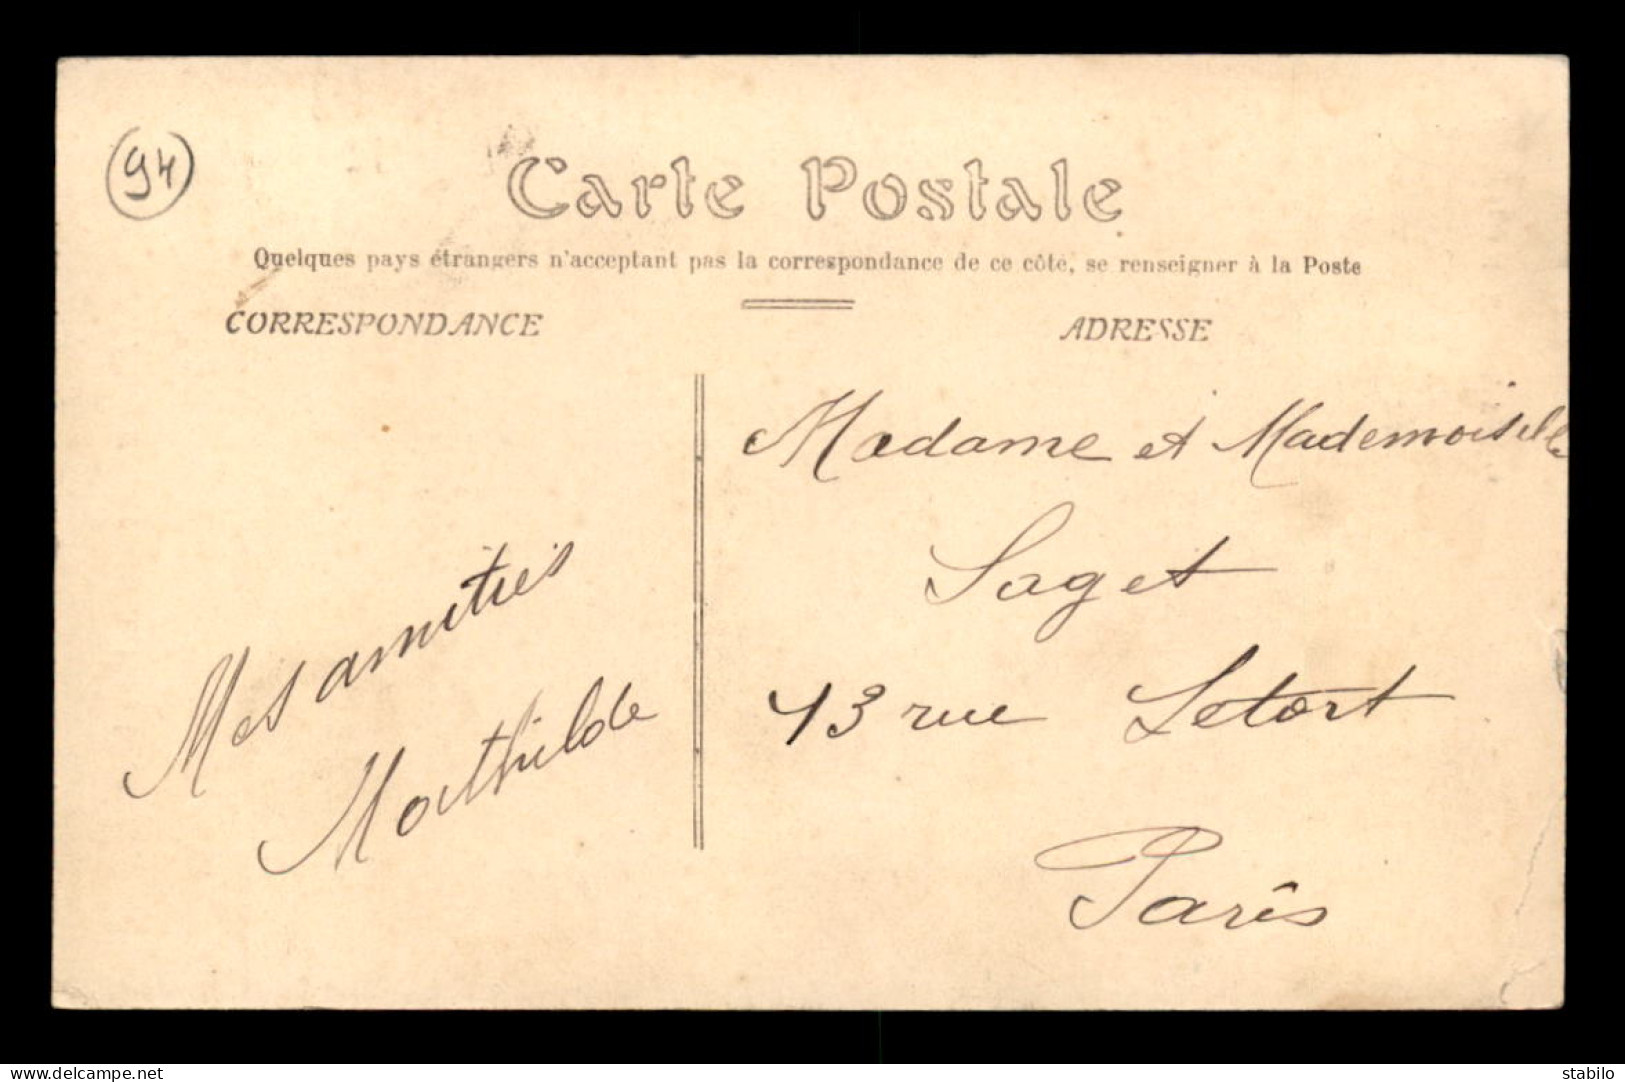 94
Carte Postale
Quelques pays étrangers n'acceptant pas la correspondance de ce côté, se renseigner à la Poste
CORRESPONDANCE
ADRESSE
Mes amitiés
Mathilde
Madame et Mademoiselle
Saget
43 rue Letort
Paris
www.delcampe.net
stabilo